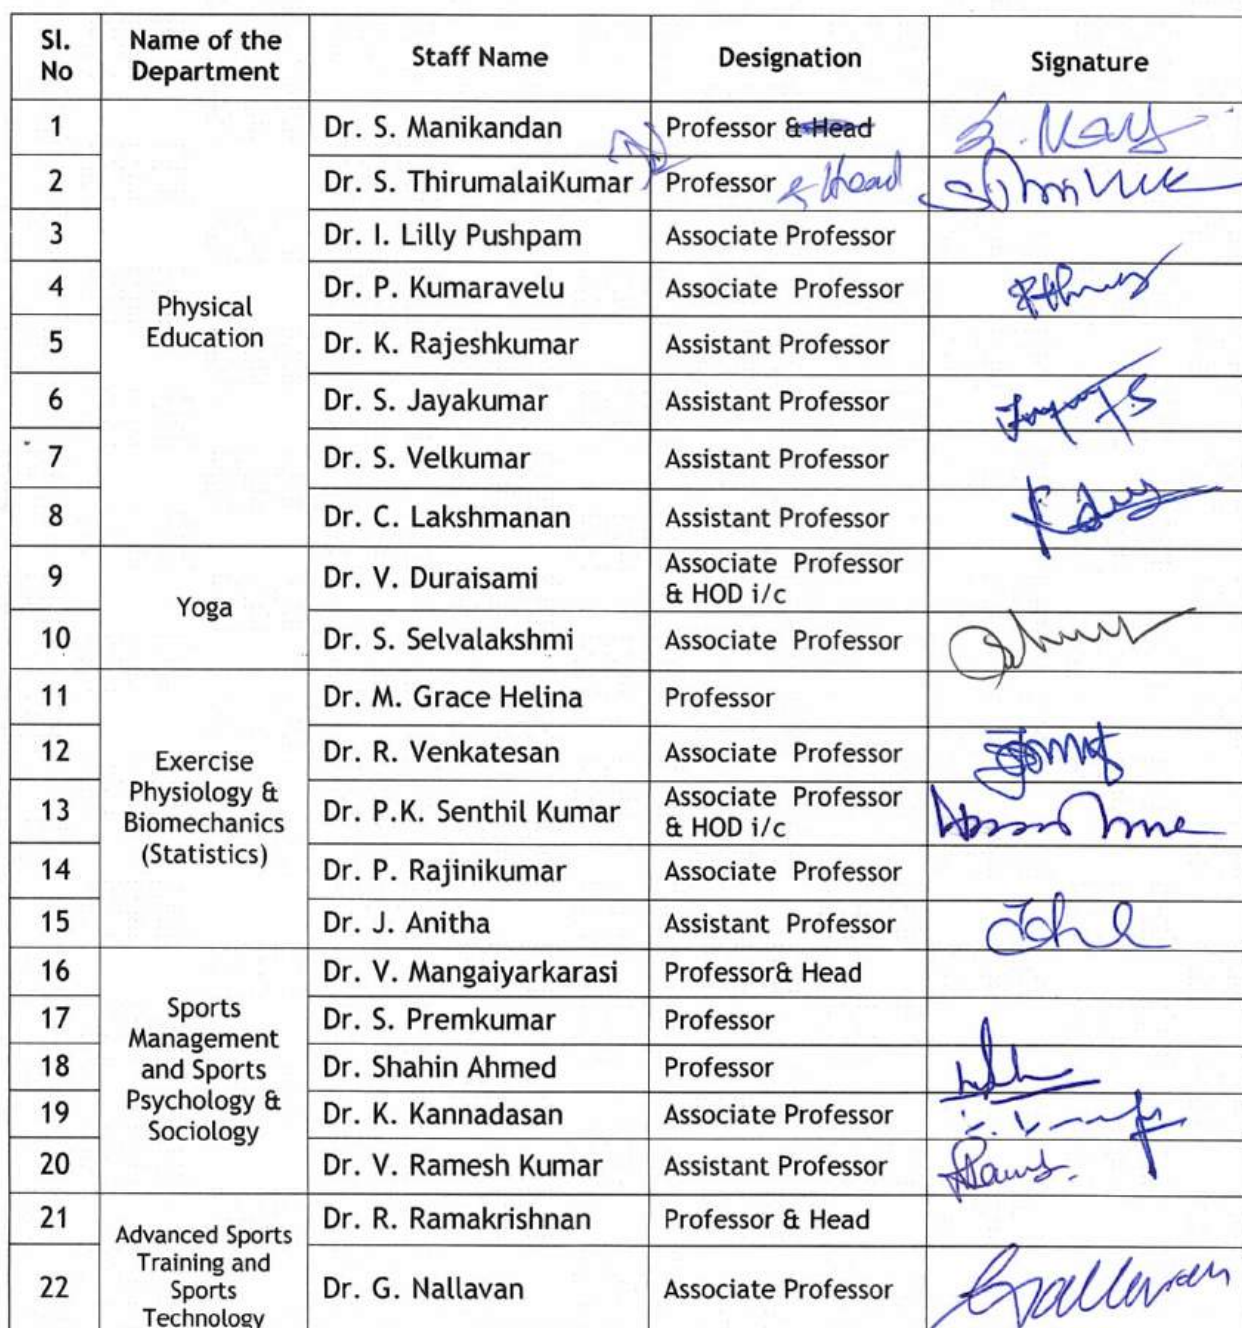 Sl. No Name of the Department Staff Name Designation Signature
1 Dr. S. Manikandan Professor & Head
2 Dr. S. ThirumalaiKumar Professor & Head
3 Dr. I. Lilly Pushpam Associate Professor
4 Physical Education Dr. P. Kumaravelu Associate Professor
5 Dr. K. Rajeshkumar Assistant Professor
6 Dr. S. Jayakumar Assistant Professor
7 Dr. S. Velkumar Assistant Professor
8 Dr. C. Lakshmanan Assistant Professor
9 Yoga Dr. V. Duraisami Associate Professor & HOD i/c
10 Dr. S. Selvalakshmi Associate Professor
11 Dr. M. Grace Helina Professor
12 Exercise Physiology & Biomechanics (Statistics) Dr. R. Venkatesan Associate Professor
13 Dr. P.K. Senthil Kumar Associate Professor & HOD i/c
14 Dr. P. Rajinikumar Associate Professor
15 Dr. J. Anitha Assistant Professor
16 Dr. V. Mangaiyarkarasi Professor& Head
17 Sports Management and Sports Psychology & Sociology Dr. S. Premkumar Professor
18 Dr. Shahin Ahmed Professor
19 Dr. K. Kannadasan Associate Professor
20 Dr. V. Ramesh Kumar Assistant Professor
21 Advanced Sports Training and Sports Technology Dr. R. Ramakrishnan Professor & Head
22 Dr. G. Nallavan Associate Professor Gnallavan